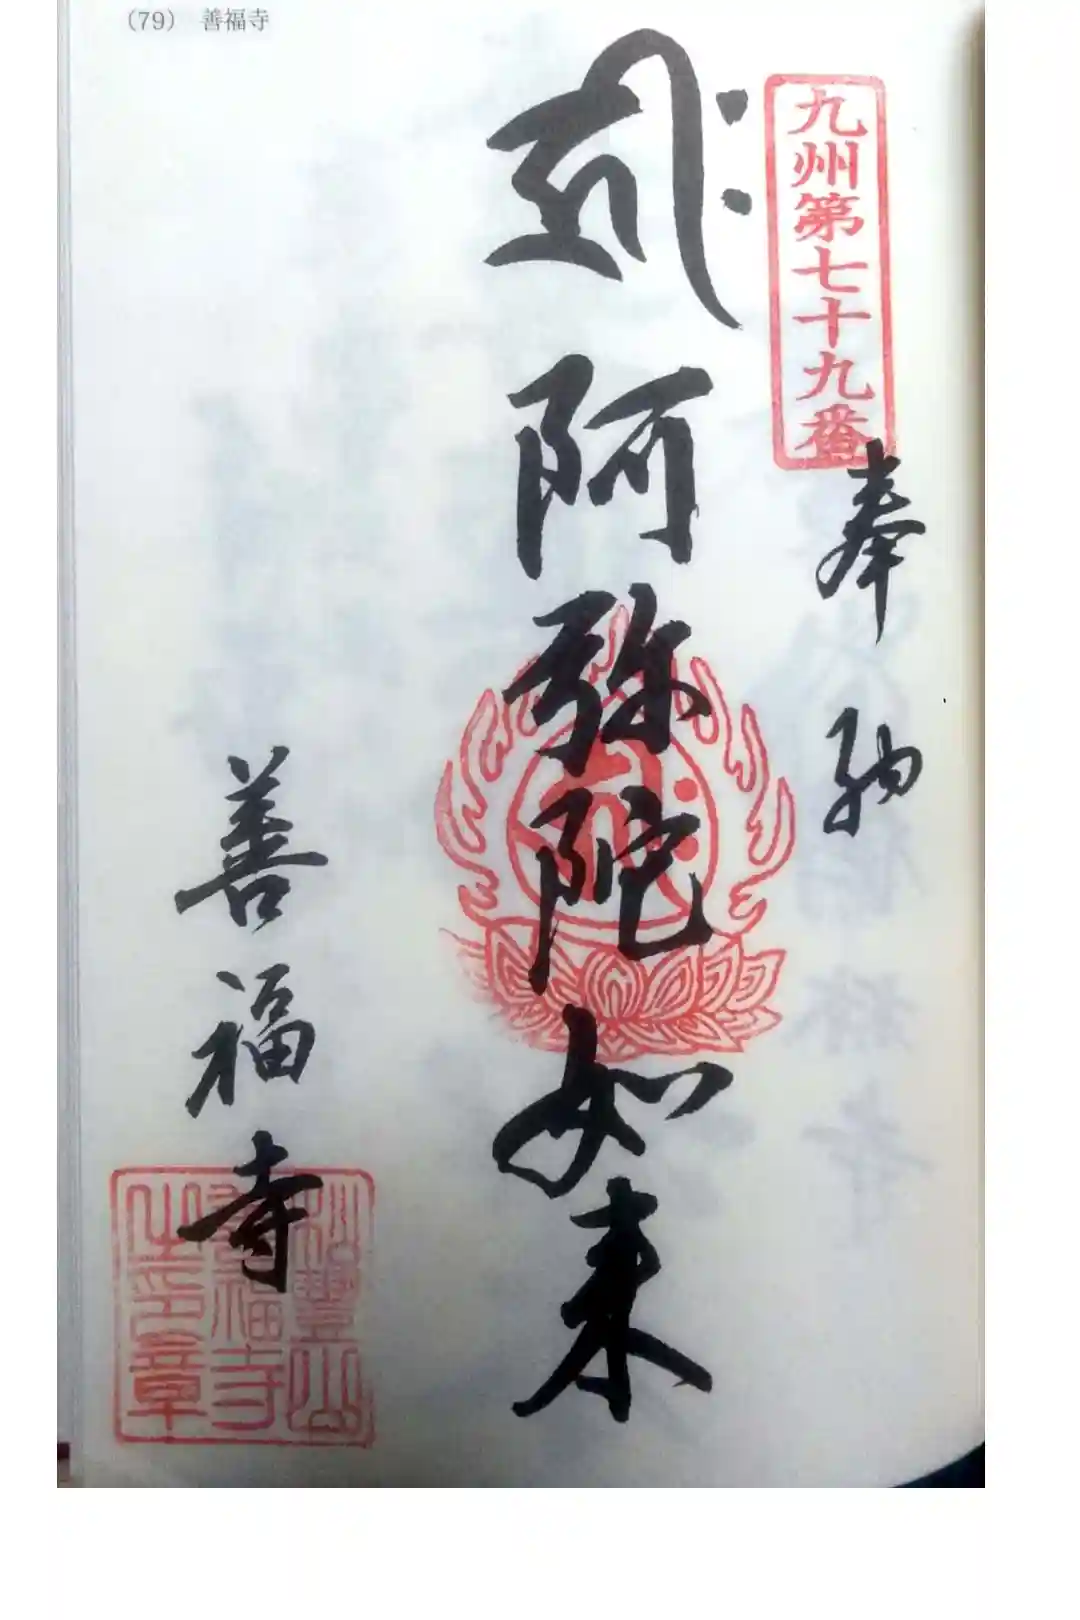 (79) 善福寺
九州第七十九番
奉納
阿弥陀如来
善福寺
妙豐山
善福寺
之印章